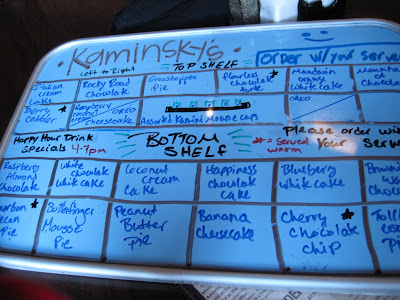 Kaminsky's
Left to Right
TOP SHELF
Order w/your Server
Italian cream cake
Rocky Road Chocolate
Grasshopper Pie
Flourless chocolate torte
Mandarin orange white cake
Mountain of Chocolate
Berry Cobbler
Raspberry Cheesecake
OREO
Assorted Kamini Mousse cups
OREO
Happy Hour Drink
Specials 4-7pm
BOTTOM
SHELF
Please order with
= Served warm
Your Server
Raspberry Almond Chocolate
White chocolate white cake
Coconut Cream Cake
Happiness chocolate cake
Blueberry white cake
Bourbon Pecan Pie
Butterfinger Mousse Pie
Peanut Butter Pie
Banana cheesecake
Cherry Chocolate chip
Pie